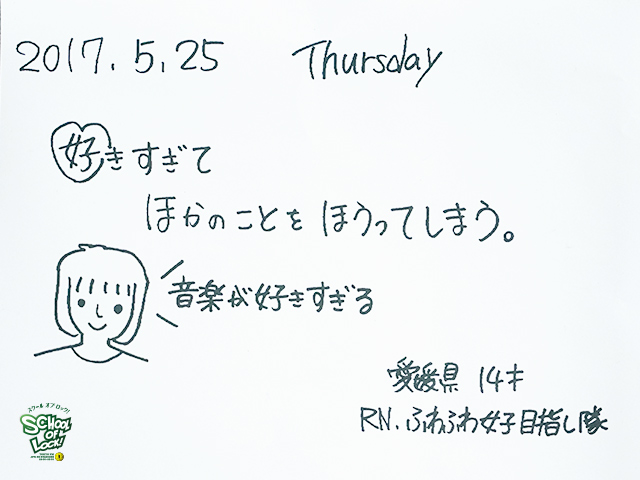 2017.5.25 Thursday
好きすぎて
ほかのことをほうってしまう。
音楽が好きすぎる
愛媛県 14才
RN.ふわふわ女子目指し隊
スクール オブ ロック!
SCHOOL
OF
LOCK!